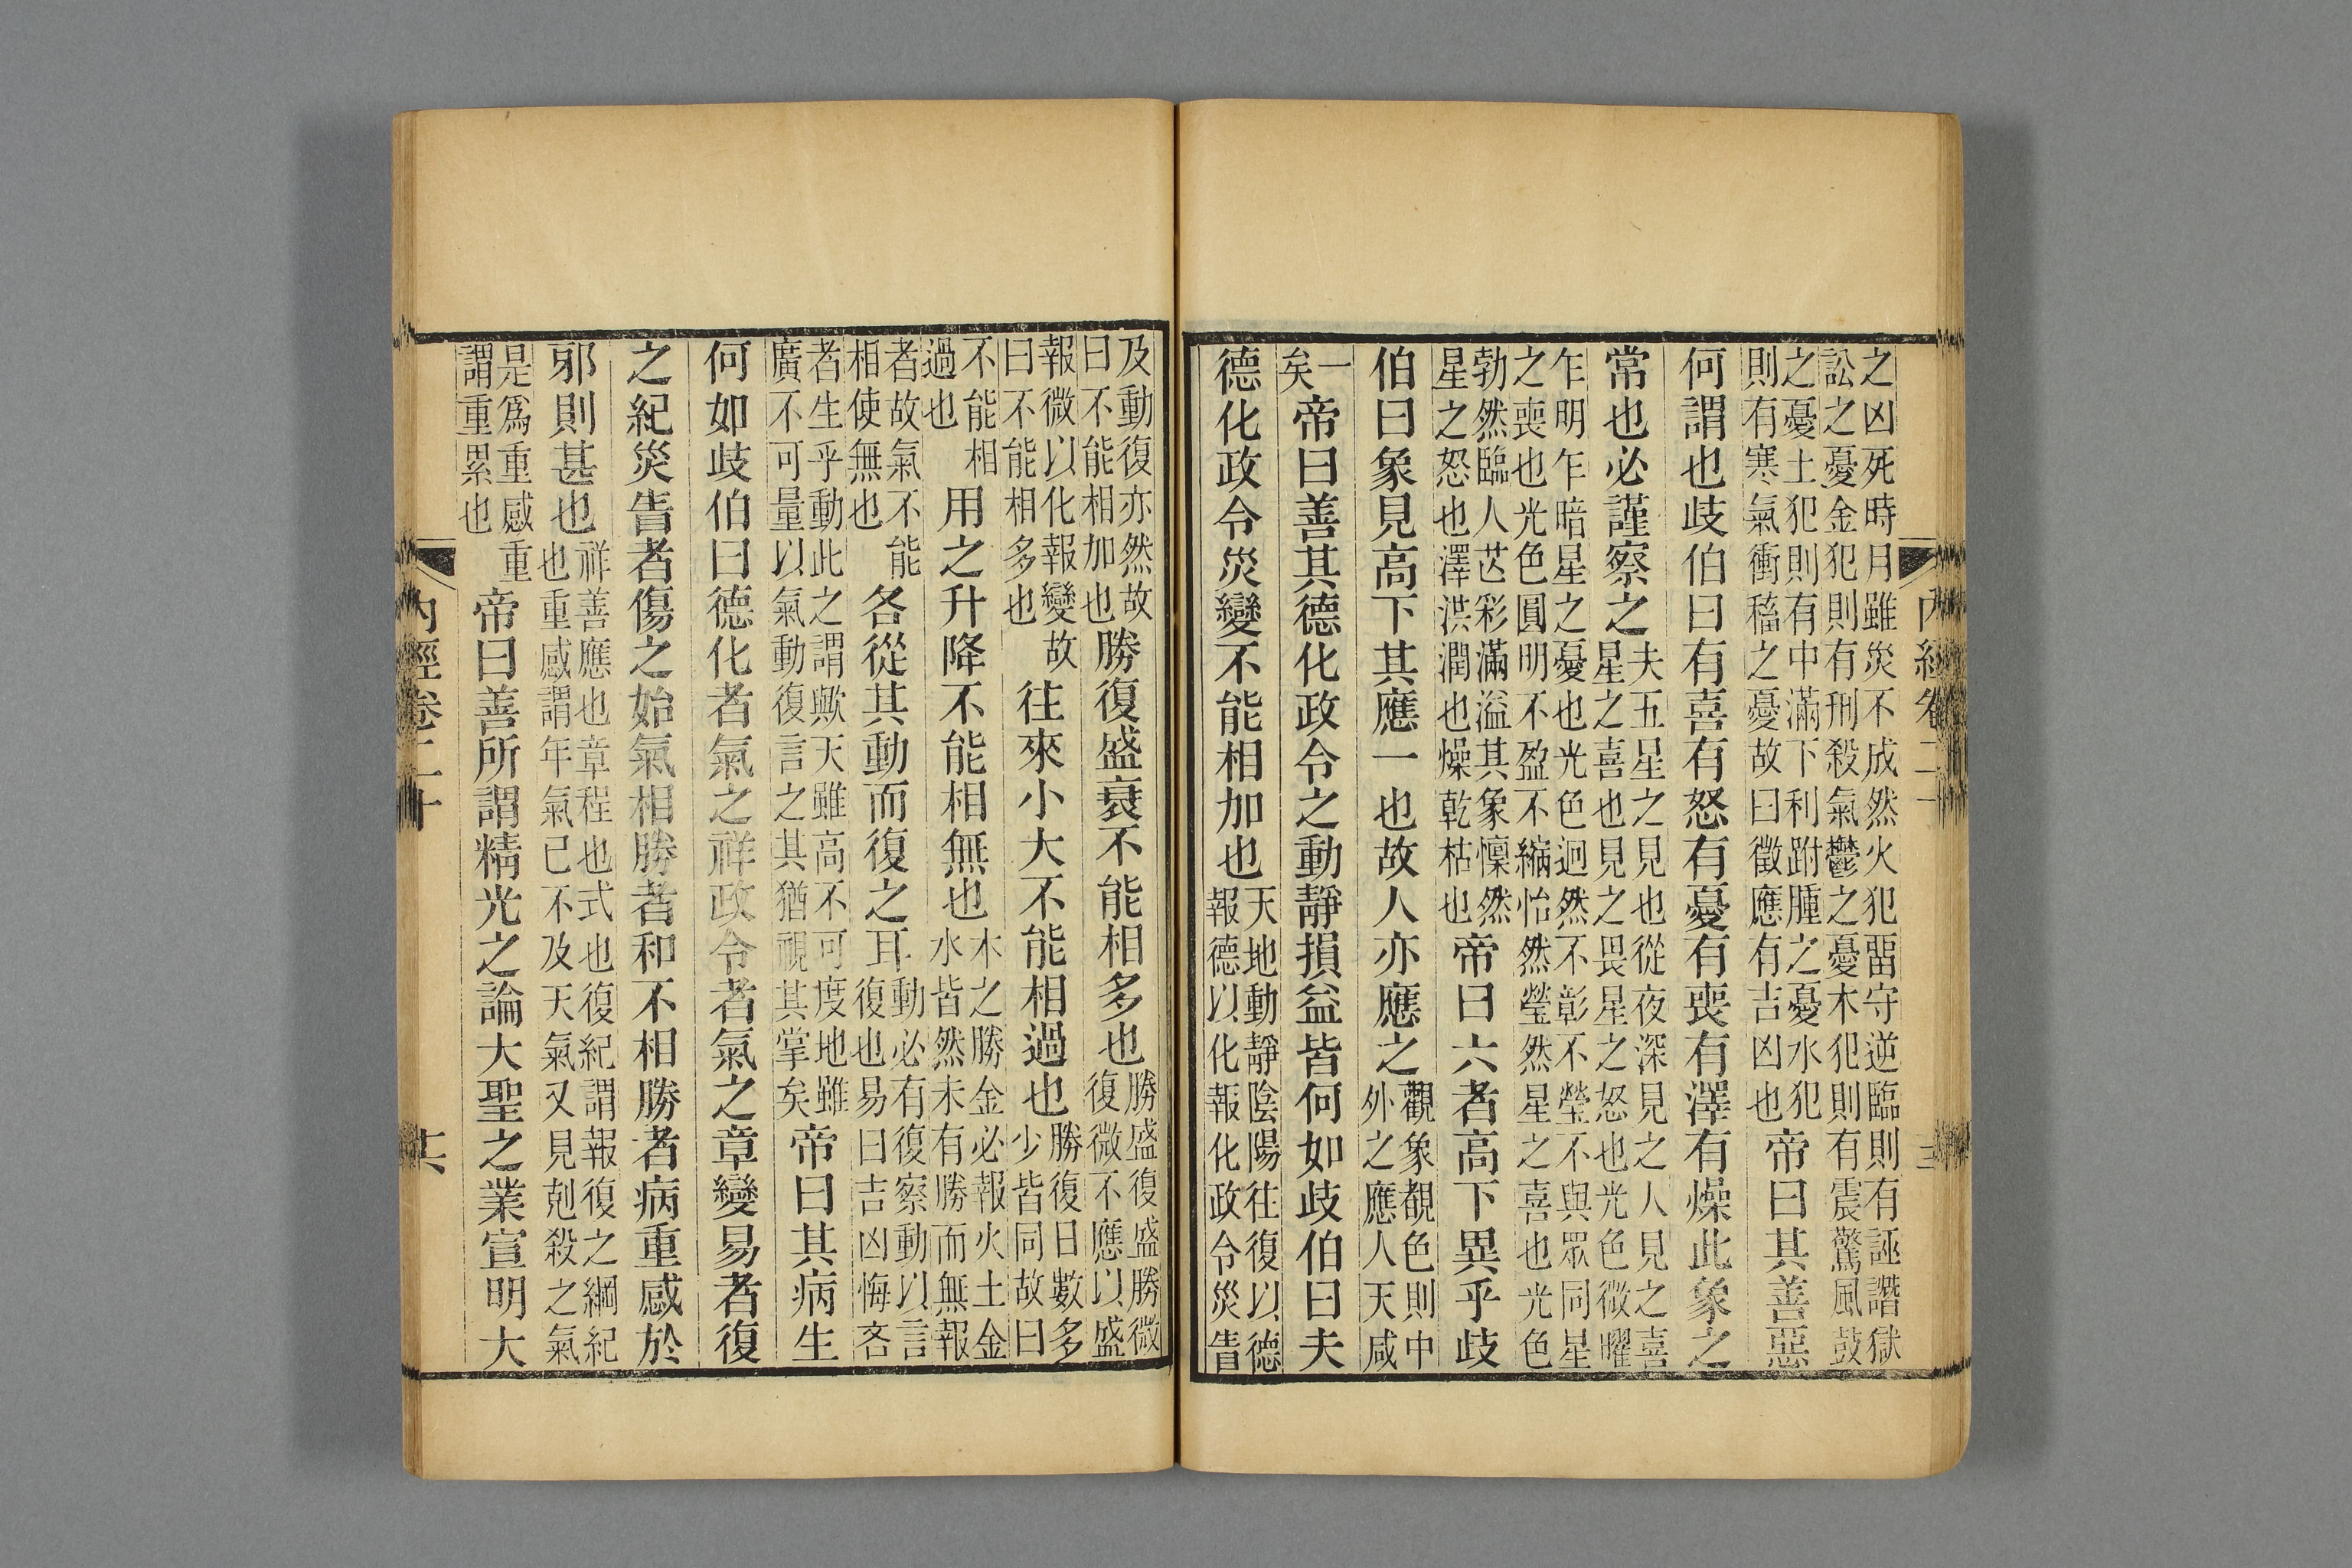 之凶死時月雖災不成然火犯畱守逆臨則有誣譖獄
訟之憂金犯則有刑殺氣鬱之憂木犯則有震驚風鼓
之憂土犯則有中滿下利跗腫之憂水犯
則有寒氣衝稸之憂故曰徵應有吉凶也
帝曰其善惡
何謂也歧伯曰有喜有怒有憂有喪有澤有燥此象之
常也必謹察之
夫五星之見也從夜深見之人見之喜
星之喜也見之畏星之怒也光色微曜
乍明乍暗星之憂也光色迥然不彰不瑩不與眾同星
之喪也光色圓明不盈不縮怡然瑩然星之喜也光色
勃然臨人芒彩滿溢其象懍然
星之怒也澤洪潤也燥乾枯也
帝曰六者高下異乎歧
伯曰象見高下其應一也故人亦應之
觀象覩色則中
外之應人天咸
一
矣
帝曰善其德化政令之動靜損益皆何如歧伯曰夫
德化政令災變不能相加也
天地動靜陰陽往復以德
報德以化報化政令災眚
及動復亦然故
曰不能相加也
勝復盛衰不能相多也
勝盛復盛勝微
復微不應以盛
報微以化報變故
曰不能相多也
往來小大不能相過也
勝復日數多
少皆同故曰
不能相
過也
用之升降不能相無也
木之勝金必報火土金
水皆然未有勝而無報
者故氣不能
相使無也
各從其動而復之耳
動必有復察動以言
復也易曰吉凶悔吝
者生乎動此之謂歟天雖高不可度地雖
廣不可量以氣動復言之其猶視其掌矣
帝曰其病生
何如歧伯曰德化者氣之祥政令者氣之章變易者復
之紀災眚者傷之始氣相勝者和不相勝者病重感於
邪則甚也
祥善應也章程也式也復紀謂報復之綱紀
也重感謂年氣已不及天氣又見剋殺之氣
是爲重感重
謂重累也
帝曰善所謂精光之論大聖之業宣明大
內經卷二十